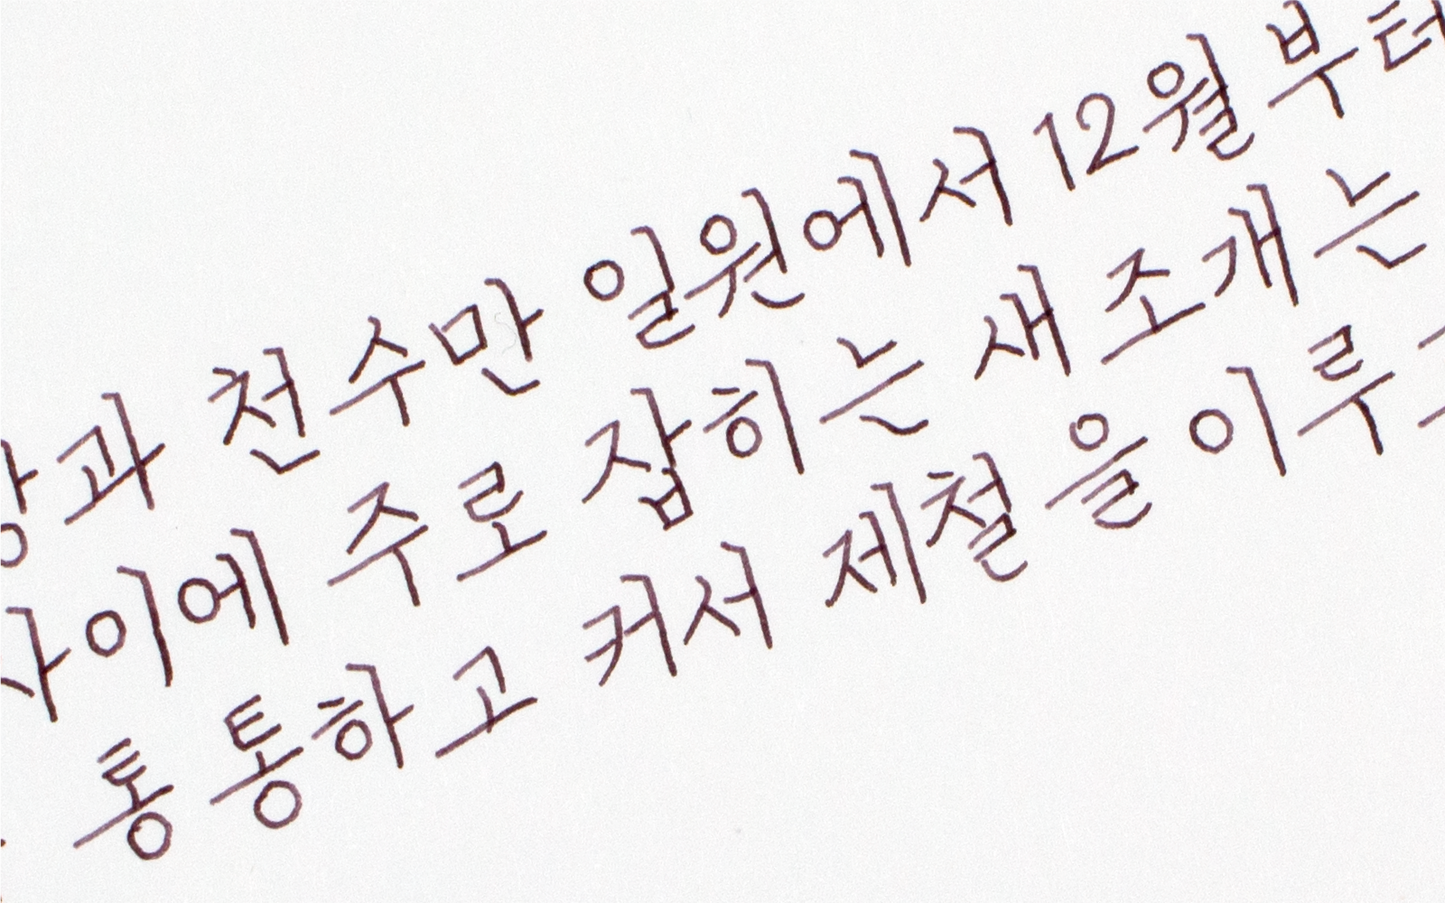 과 천수만 일원에서 12월부터
사이에 주로 잡히는 새조개는
통통하고 커서 제철을 이루